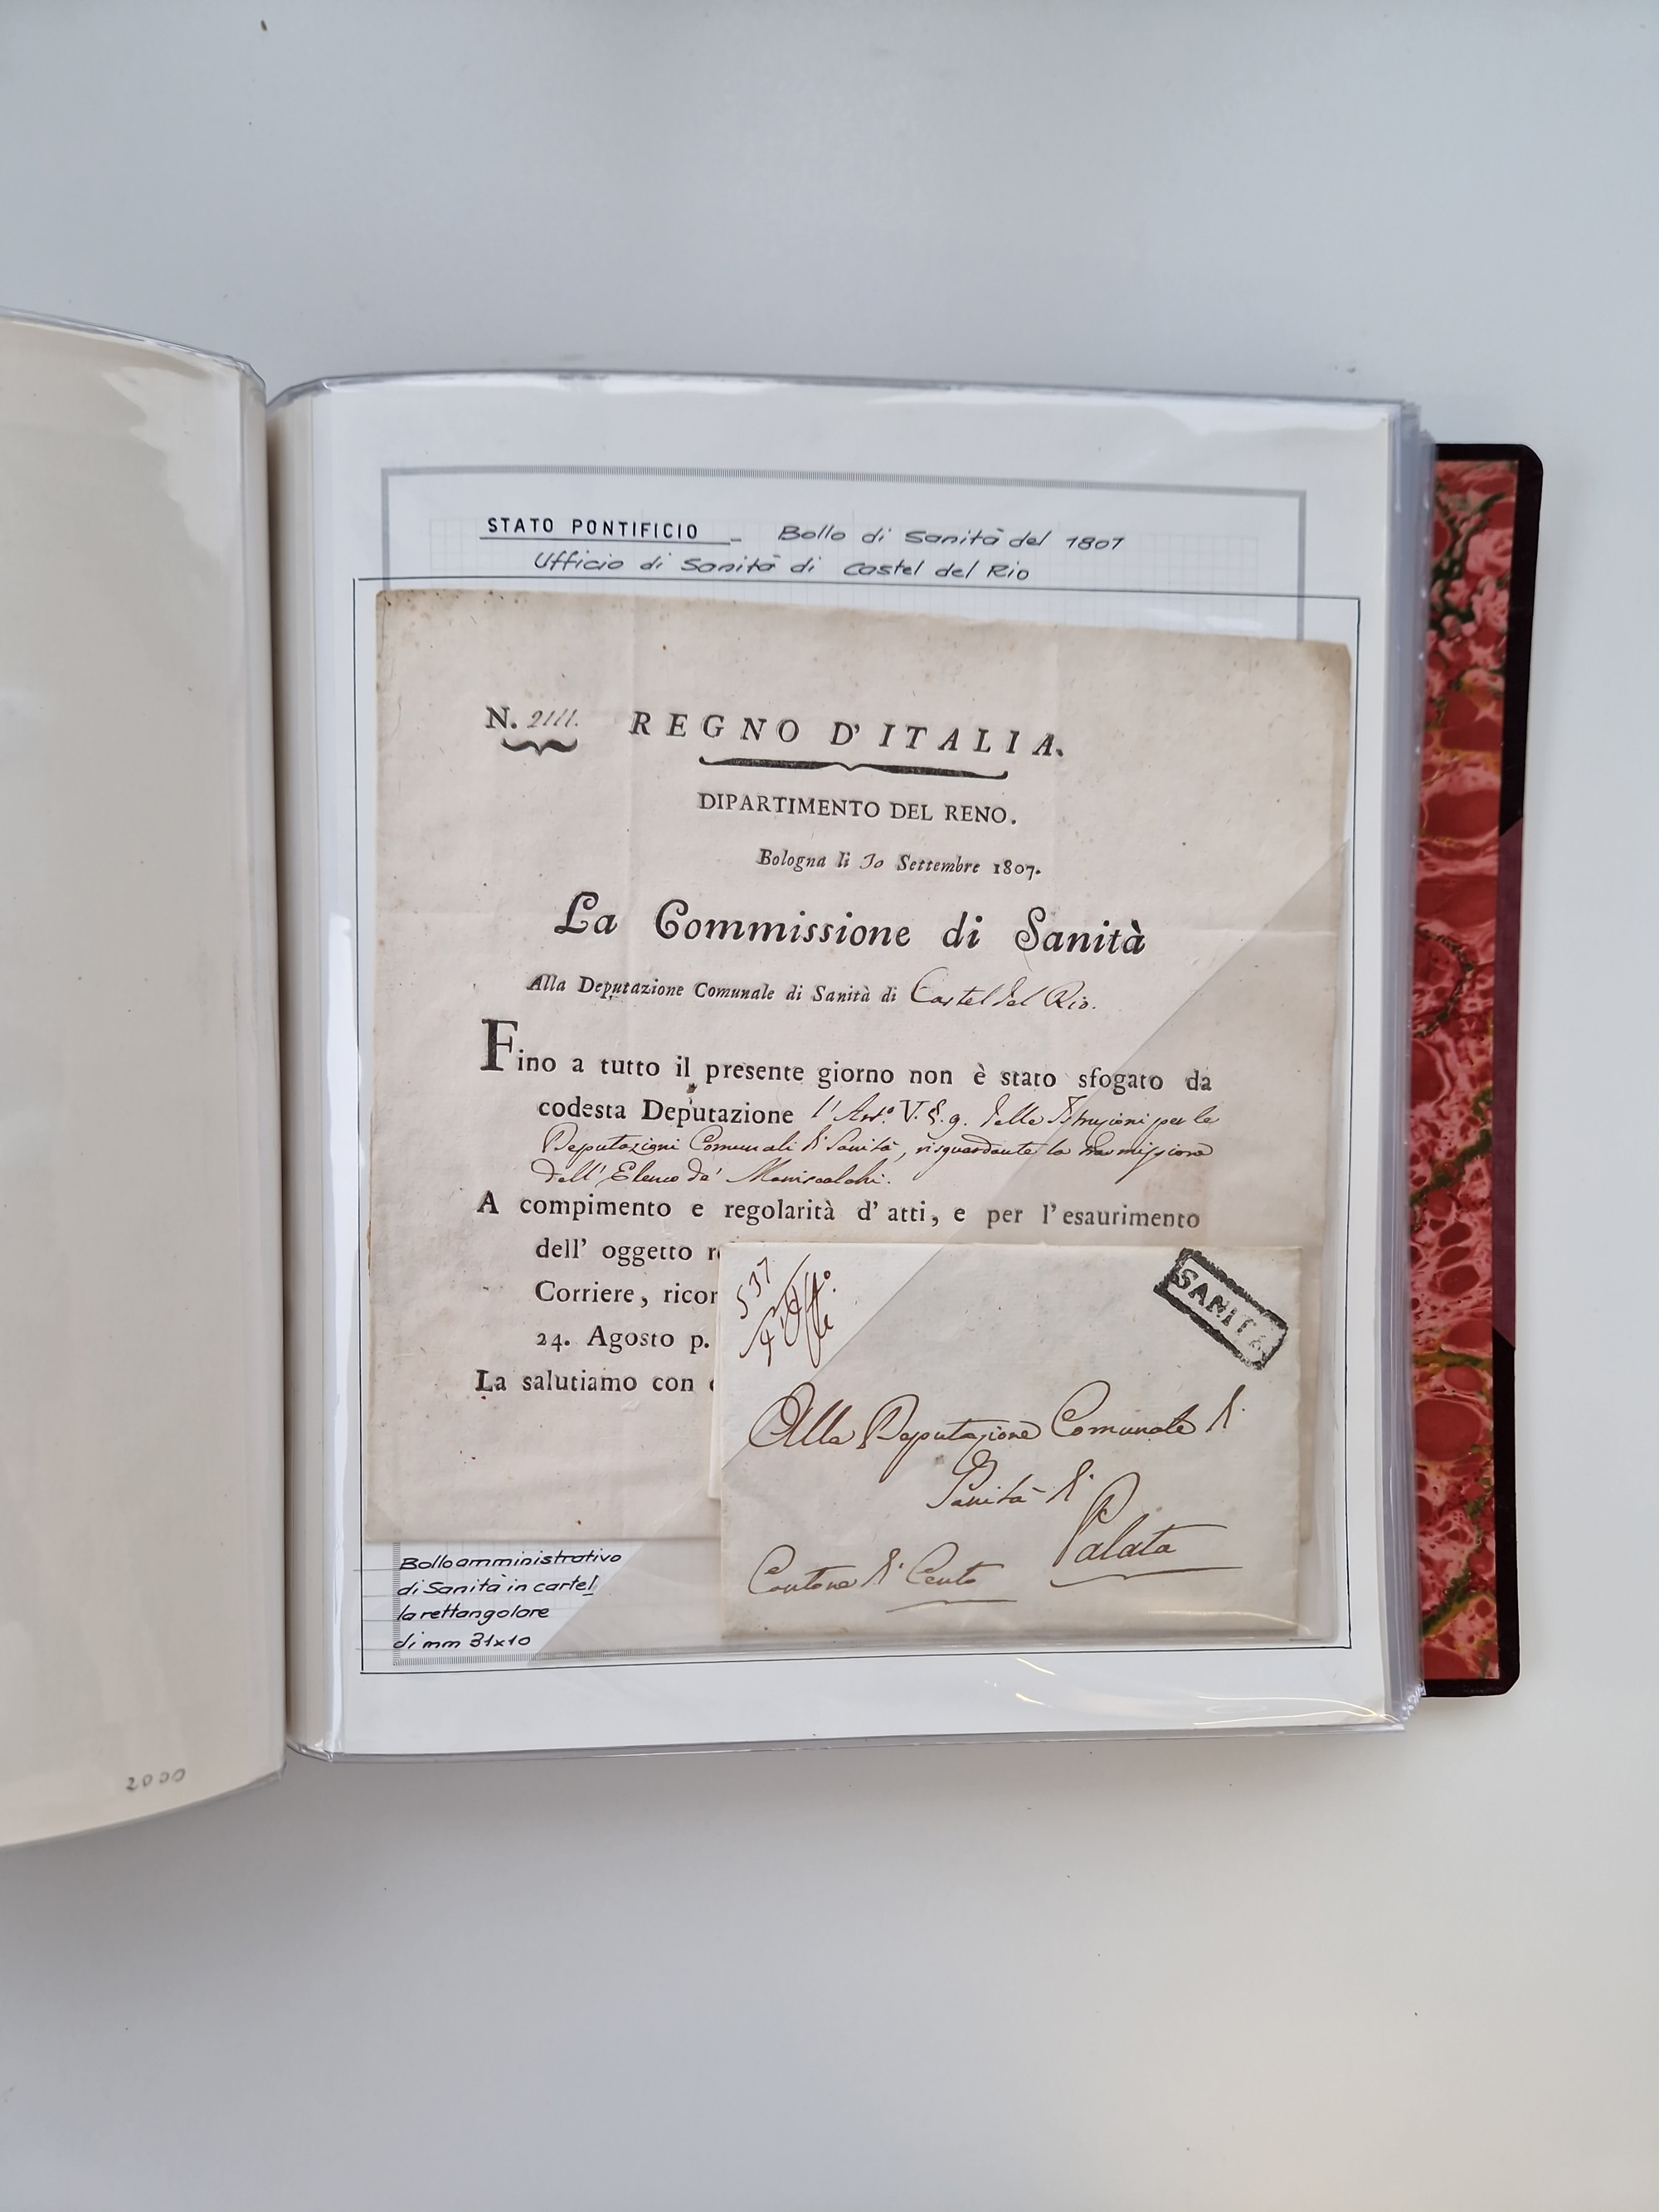 STATO PONTIFICIO - Bollo di Sanità del 1807
Ufficio di Sanità di Castel del Rio
N. 2111. REGNO D' ITALIA.
DIPARTIMENTO DEL RENO.
Bologna li 30 Settembre 1807.
La Commissione di Sanità
Alla Deputazione Comunale di Sanità di Castel del Rio.
Fino a tutto il presente giorno non è stato sfogato da
codesta Deputazione l' Art.º V. §. 9. delle Istruzioni per le
Deputazioni Comunali di Sanità, risguardante la trasmissione
dell' Elenco de' Maniscalchi.
A compimento e regolarità d' atti, e per l' esaurimento
dell' oggetto
Corriere,
24. Agosto p.
La salutiamo con
537
SANITÀ
Alla Deputazione Comunale di
Sanità di
Palata
Cantone di Cento
Bollo amministrativo
di Sanità in cartel
la rettangolare
di mm 31x10
2000